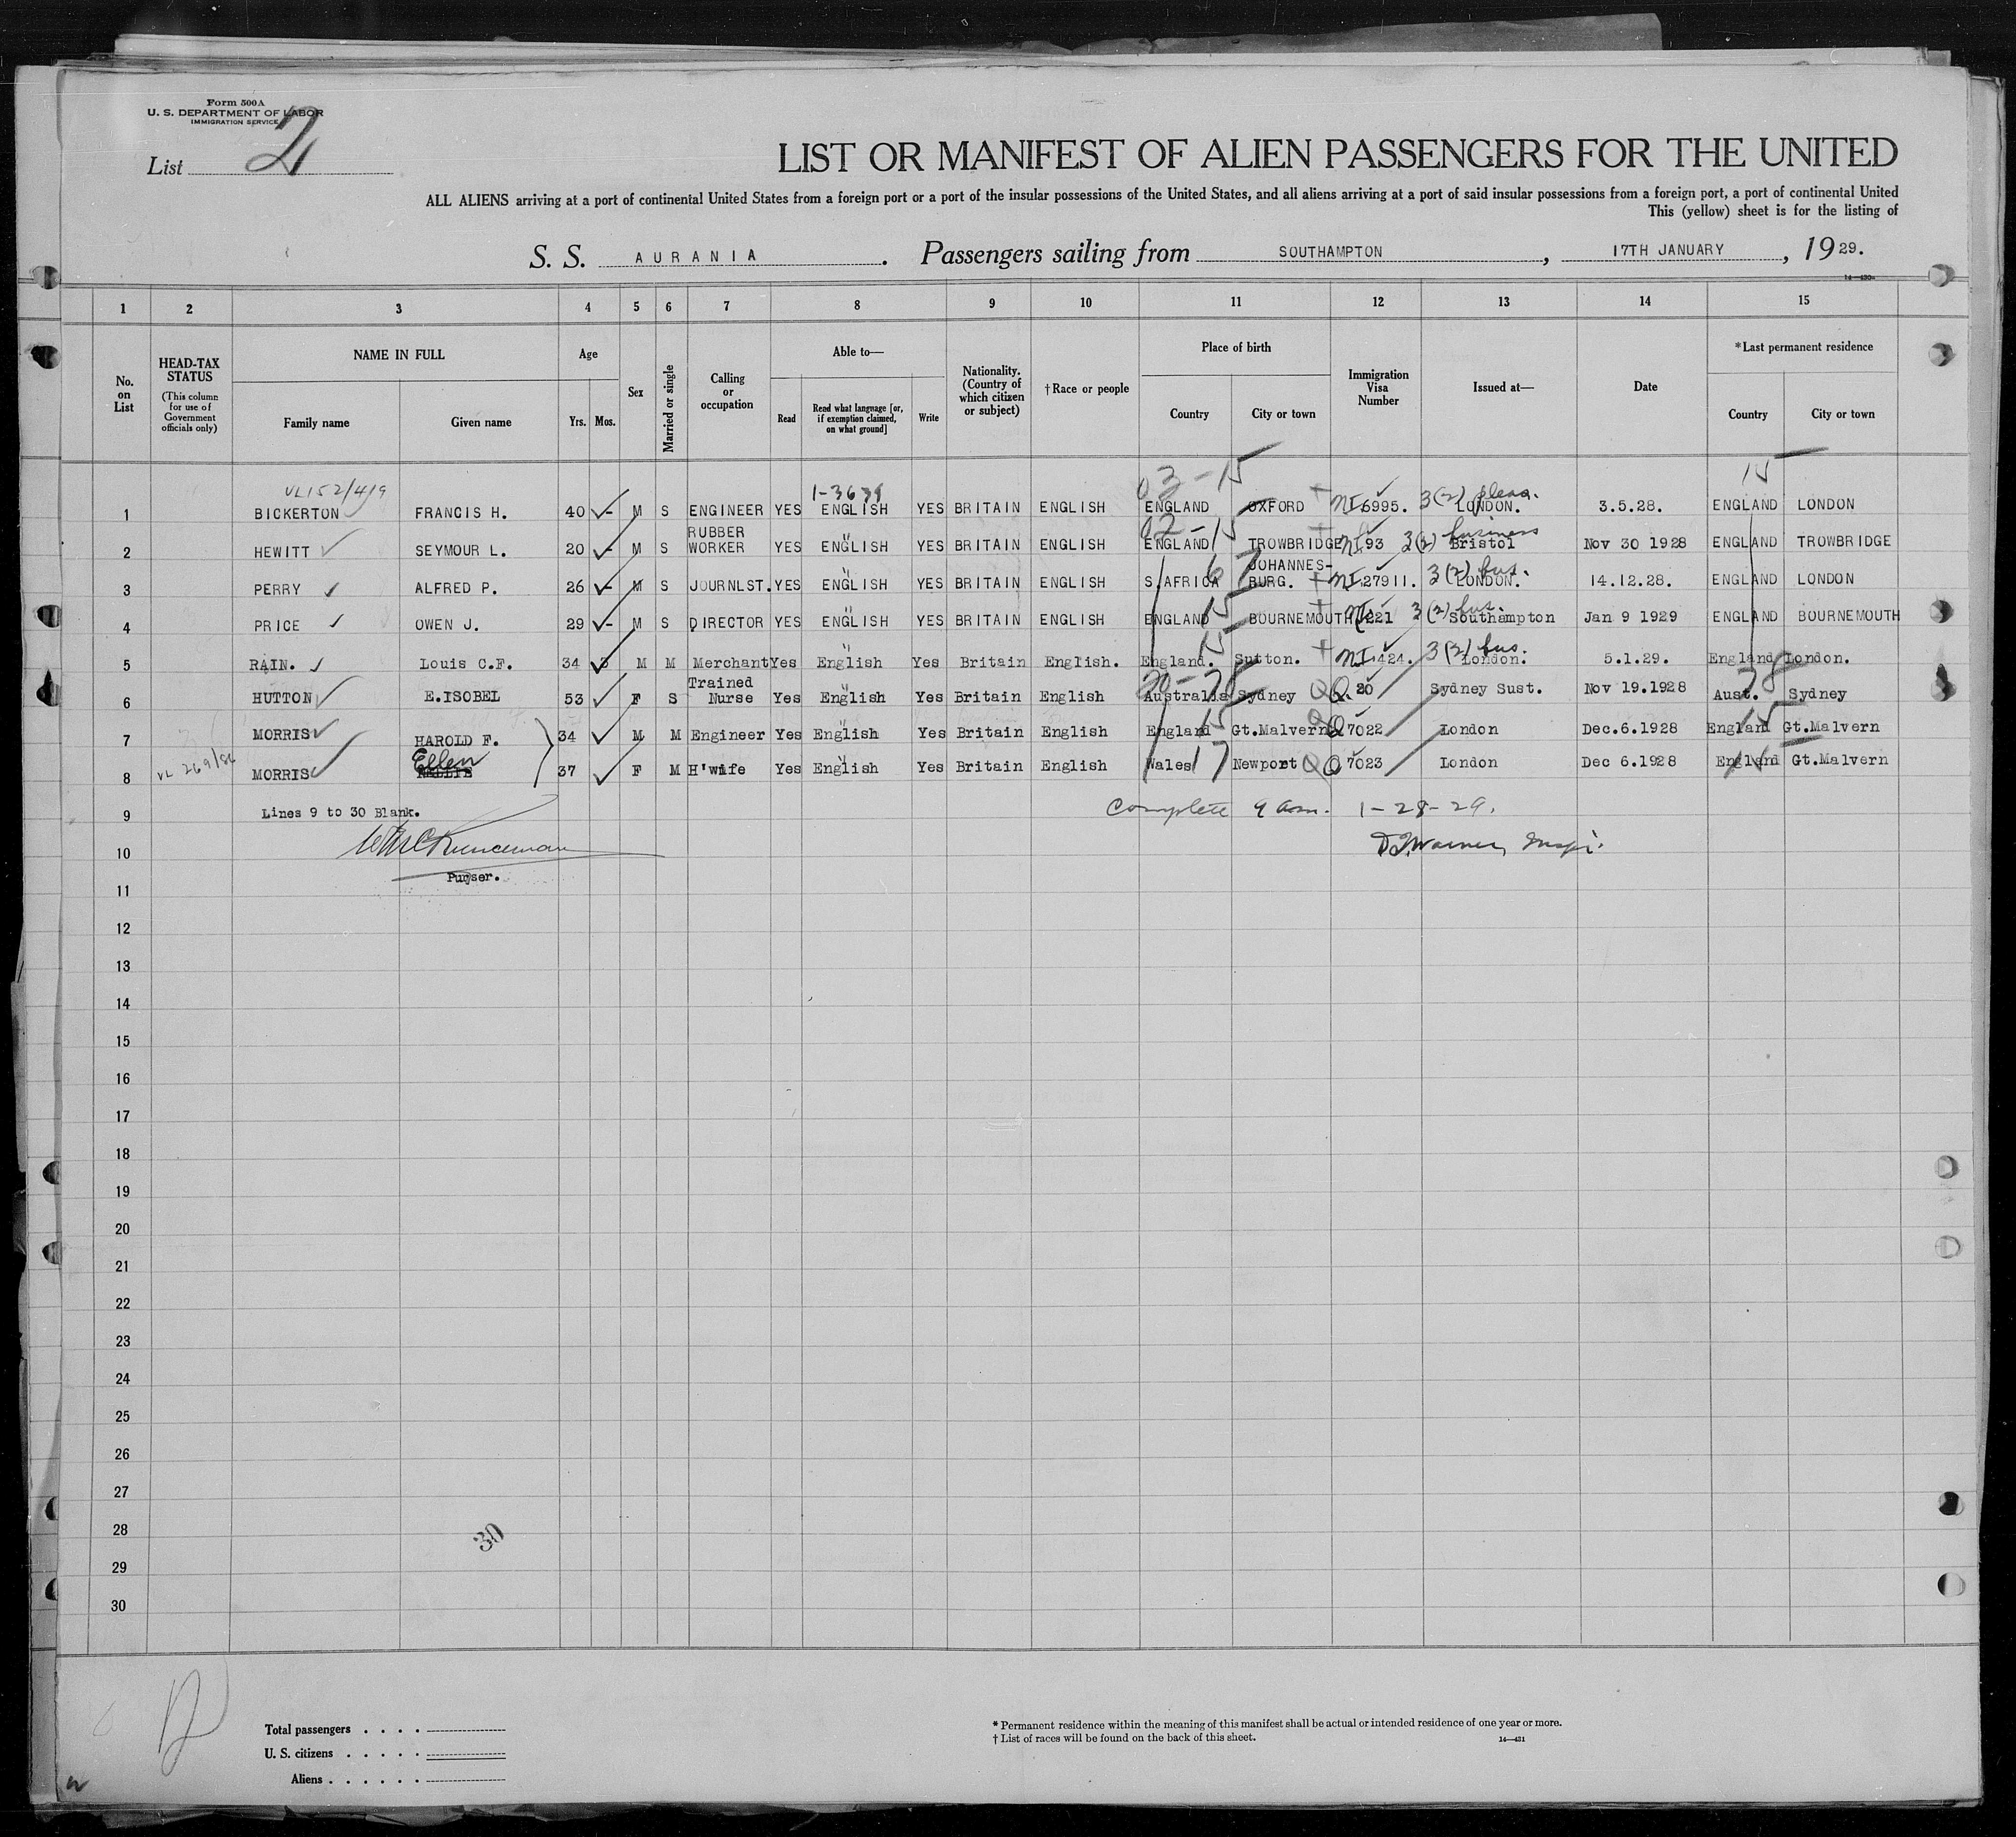 Form 500A
U. S. DEPARTMENT OF LABOR
IMMIGRATION SERVICE
List 2
LIST OR MANIFEST OF ALIEN PASSENGERS FOR THE UNITED
ALL ALIENS arriving at a port of continental United States from a foreign port or a port of the insular possessions of the United States, and all aliens arriving at a port of said insular possessions from a foreign port, a port of continental United
This (yellow) sheet is for the listing of
S. S. AURANIA. Passengers sailing from SOUTHAMPTON, 17TH JANUARY, 1929.
1 2 3 4 5 6 7 8 9 10 11 12 13 14 15
No. on List
HEAD-TAX STATUS
(This column for use of Government officials only)
NAME IN FULL
Family name
Given name
Age
Yrs.
Mos.
Sex
Married or single
Calling or occupation
Able to—
Read
Read what language [or, if exemption claimed, on what ground]
Write
Nationality. (Country of which citizen or subject)
† Race or people
Place of birth
Country
City or town
Immigration Visa Number
Issued at—
Date
*Last permanent residence
Country
City or town
VL152/419 1-3639 03-15 3(2) pleas. 15
1 BICKERTON FRANCIS H. 40 - M S ENGINEER YES ENGLISH YES BRITAIN ENGLISH ENGLAND OXFORD NI 6995. LONDON. 3.5.28. ENGLAND LONDON
02-15 3(2) business
2 HEWITT SEYMOUR L. 20 - M S RUBBER WORKER YES ENGLISH YES BRITAIN ENGLISH ENGLAND TROWBRIDGE NI 93 Bristol Nov 30 1928 ENGLAND TROWBRIDGE
67 3(2) bus.
3 PERRY ALFRED P. 26 - M S JOURNLST. YES ENGLISH YES BRITAIN ENGLISH S.AFRICA JOHANNES-BURG. NI 27911. LONDON. 14.12.28. ENGLAND LONDON
15 3(2) bus.
4 PRICE OWEN J. 29 - M S DIRECTOR YES ENGLISH YES BRITAIN ENGLISH ENGLAND BOURNEMOUTH 221 Southampton Jan 9 1929 ENGLAND BOURNEMOUTH
15 3(2) bus.
5 RAIN. Louis C.F. 34 3 M M Merchant Yes English Yes Britain English. England. Sutton. NI 424. London. 5.1.29. England London.
20-78 78
6 HUTTON E.ISOBEL 53 F S Trained Nurse Yes English Yes Britain English Australia Sydney Q. 20 Sydney Sust. Nov 19.1928 Aust. Sydney
15 15
7 MORRIS HAROLD F. 34 M M Engineer Yes English Yes Britain English England Gt.Malvern Q 7022 London Dec.6.1928 England Gt.Malvern
VL 269/86 Ellen 17 15
8 MORRIS NELLIE 37 F M H'wife Yes English Yes Britain English Wales Newport Q 7023 London Dec 6.1928 England Gt.Malvern
9 Lines 9 to 30 Blank. Complete 9 am. 1-28-29.
10 Warner, Insp.
Purser.
11
12
13
14
15
16
17
18
19
20
21
22
23
24
25
26
27
28
30
29
30
Total passengers . . . .
U. S. citizens . . . . .
Aliens . . . . . .
* Permanent residence within the meaning of this manifest shall be actual or intended residence of one year or more.
† List of races will be found on the back of this sheet.
14—431